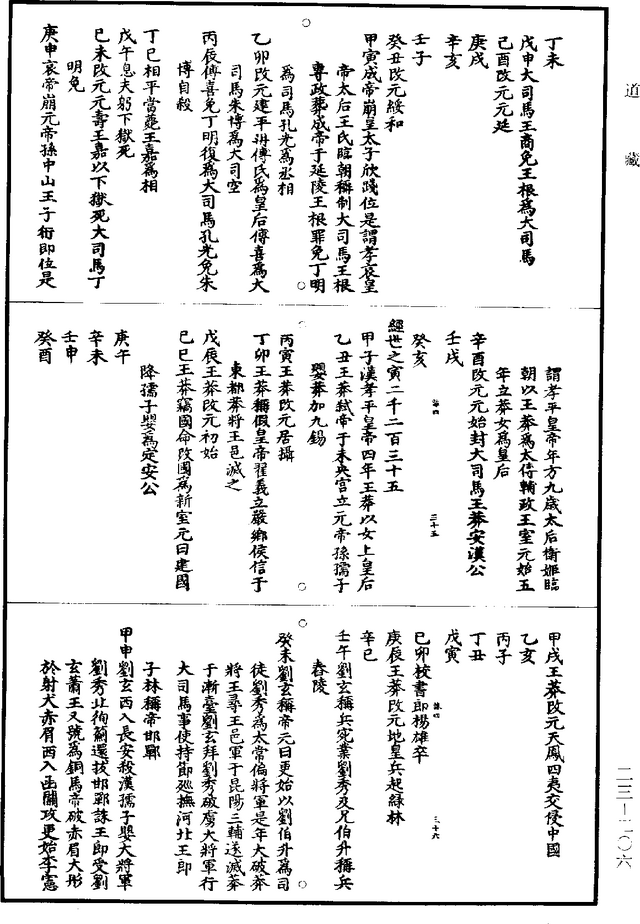 道藏
丁未
戊申大司馬王商免王根為大司馬
己酉改元元延
庚戌
辛亥
壬子
癸丑改元綏和
甲寅成帝崩皇太子欣踐位是謂孝哀皇
帝太后王氏臨朝稱制大司馬王根
專政葬成帝于延陵王根罪免丁明
為司馬孔光為丞相
乙卯改元建平冊傅氏為皇后傅喜為大
司馬朱博為大司空
丙辰傅喜免丁明復為大司馬孔光免朱
博自殺
丁巳相平當薨王嘉為相
戊午息夫躬下獄死
己未改元元壽王嘉以下獄死大司馬丁
明免
庚申哀帝崩元帝孫中山王子衎即位是
謂孝平皇帝年方九歲太后衛姬臨
朝以王莽為太傅輔政王室元始五
年立莽女為皇后
辛酉改元元始封大司馬王莽安漢公
壬戌
癸亥
三十五
經世之寅二千二百三十五
甲子漢孝平皇帝四年王莽以女上皇后
乙丑王莽弒帝于未央宮立元帝孫孺子
嬰莽加九錫
丙寅王莽改元居攝
丁卯王莽稱假皇帝翟義立嚴鄉侯信于
東都莽將王邑滅之
戊辰王莽改元初始
己巳王莽竊國命改國為新室元曰建國
降孺子嬰為定安公
庚午
辛未
壬申
癸酉
甲戌王莽改元天鳳四夷交侵中國
乙亥
丙子
丁丑
戊寅
三十六
己卯校書郎楊雄卒
庚辰王莽改元地皇兵起綠林
辛巳
壬午劉玄稱兵宛業劉秀及兄伯升稱兵
舂陵
癸未劉玄稱帝元曰更始以劉伯升為司
徒劉秀為太常偏將軍是年大破莽
將王尋王邑軍于昆陽三輔遂滅莽
于漸臺劉玄拜劉秀破虜大將軍行
大司馬事使持節巡撫河北王郎
子林稱帝邯鄲
甲申劉玄西入長安殺漢孺子嬰大將軍
劉秀北徇薊還拔邯鄲誅王郎受劉
玄蕭王又號為銅馬帝破赤眉大肜
於射犬赤眉西入函關攻更始李憲
二三—二〇六